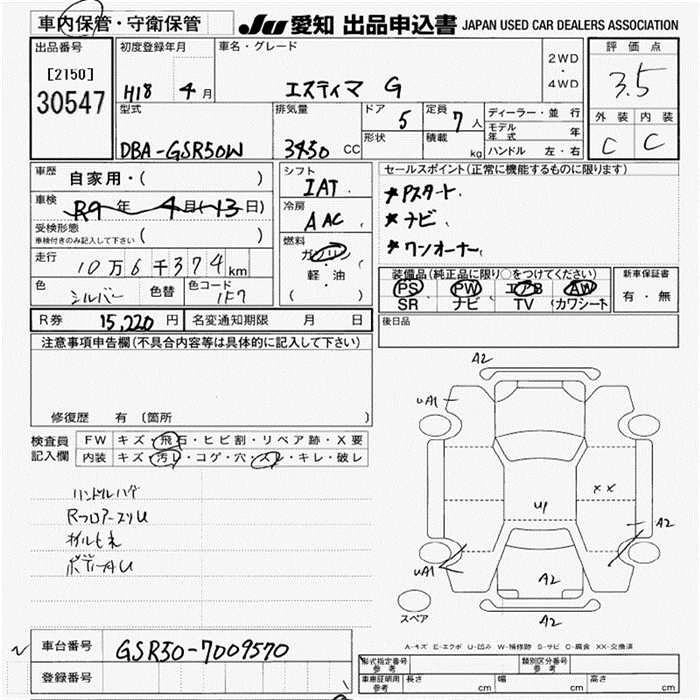 車内保管・守衛保管
JU 愛知 出品申込書 JAPAN USED CAR DEALERS ASSOCIATION
出品番号
[2150]
30547
初度登録年月
H18 4 月
車名・グレード
エスティマ G
2WD
・
4WD
評価点
3.5
外装 内装
C C
型式
DBA-GSR50W
排気量
3450 CC
ドア
5
形状
定員
7 人
積載
kg
ディーラー・並行
モデル年式 年
ハンドル 左・右
車歴
自家用・( )
車検
R9 年 4 月 (13 日)
受検形態
車検付きのみ記入して下さい ( )
走行
10 万 6 千 3 7 4 km
色
シルバー
色替
色コード
1F7
シフト
IAT
冷房
AAC
燃料
ガソリン
軽・油
( )
R券 15,220 円 名変通知期限 月 日
セールスポイント(正常に機能するものに限ります)
*Pスタート.
*ナビ.
*ワンオーナー.
装備品(純正品に限り○をつけてください)
PS PW エアB AW
SR ナビ TV (カワシート
新車保証書
有・無
後日品
注意事項申告欄(不具合内容等は具体的に記入して下さい)
修復歴 有 〔箇所
検査員
記入欄
FW キズ・飛石・ヒビ割・リペア跡・X要
内装 キズ・汚レ・コゲ・穴・スレ・キレ・破レ
ハンドルハゲ
RフロアースリU
ボディーAU
A2
UA1
U1
XX
A2
UA1
A2
スペア
A2
A-キズ E-エクボ U-凹み W-補修跡 S-サビ C-腐食 XX-交換済
車台番号 GSR50-7009570
登録番号
型式指定番号
参考
類別区分番号
参考
車庫証明用
参考
長さ cm 幅 cm 高さ cm